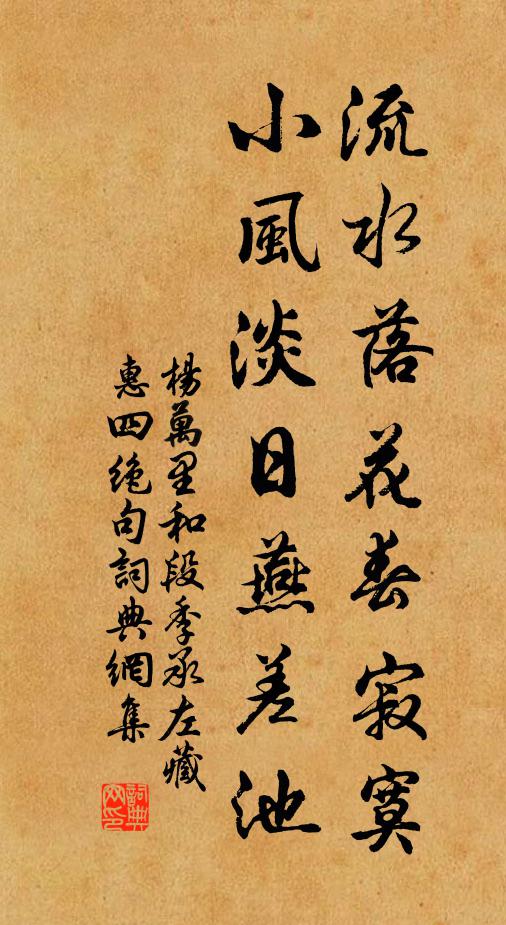 流水落花春寂寞
小風淡日燕差池
楊萬里和段季承左藏
惠四絶句詞典網集
詞典
网印